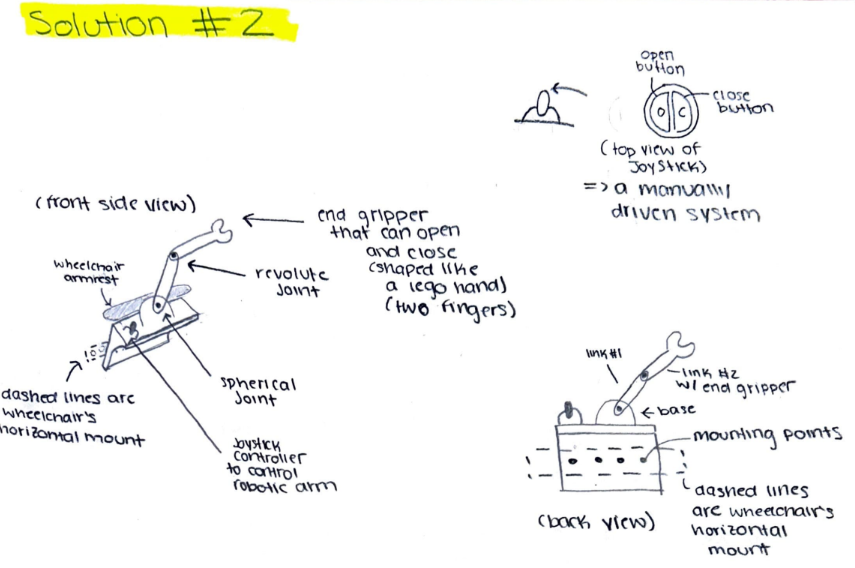 Solution #2
open
button
close
button
O
C
(top view of
Joystick)
=> a manually
driven system
(front side view)
end gripper
that can open
and close
(shaped like
a lego hand)
(two fingers)
wheelchair
armrest
revolute
Joint
spherical
Joint
dashed lines are
wheelchair's
horizontal mount
Joystick
controller
to control
robotic arm
link #1
link #2
w/ end gripper
base
mounting points
dashed lines
are wheelchair's
horizontal
mount
(back view)